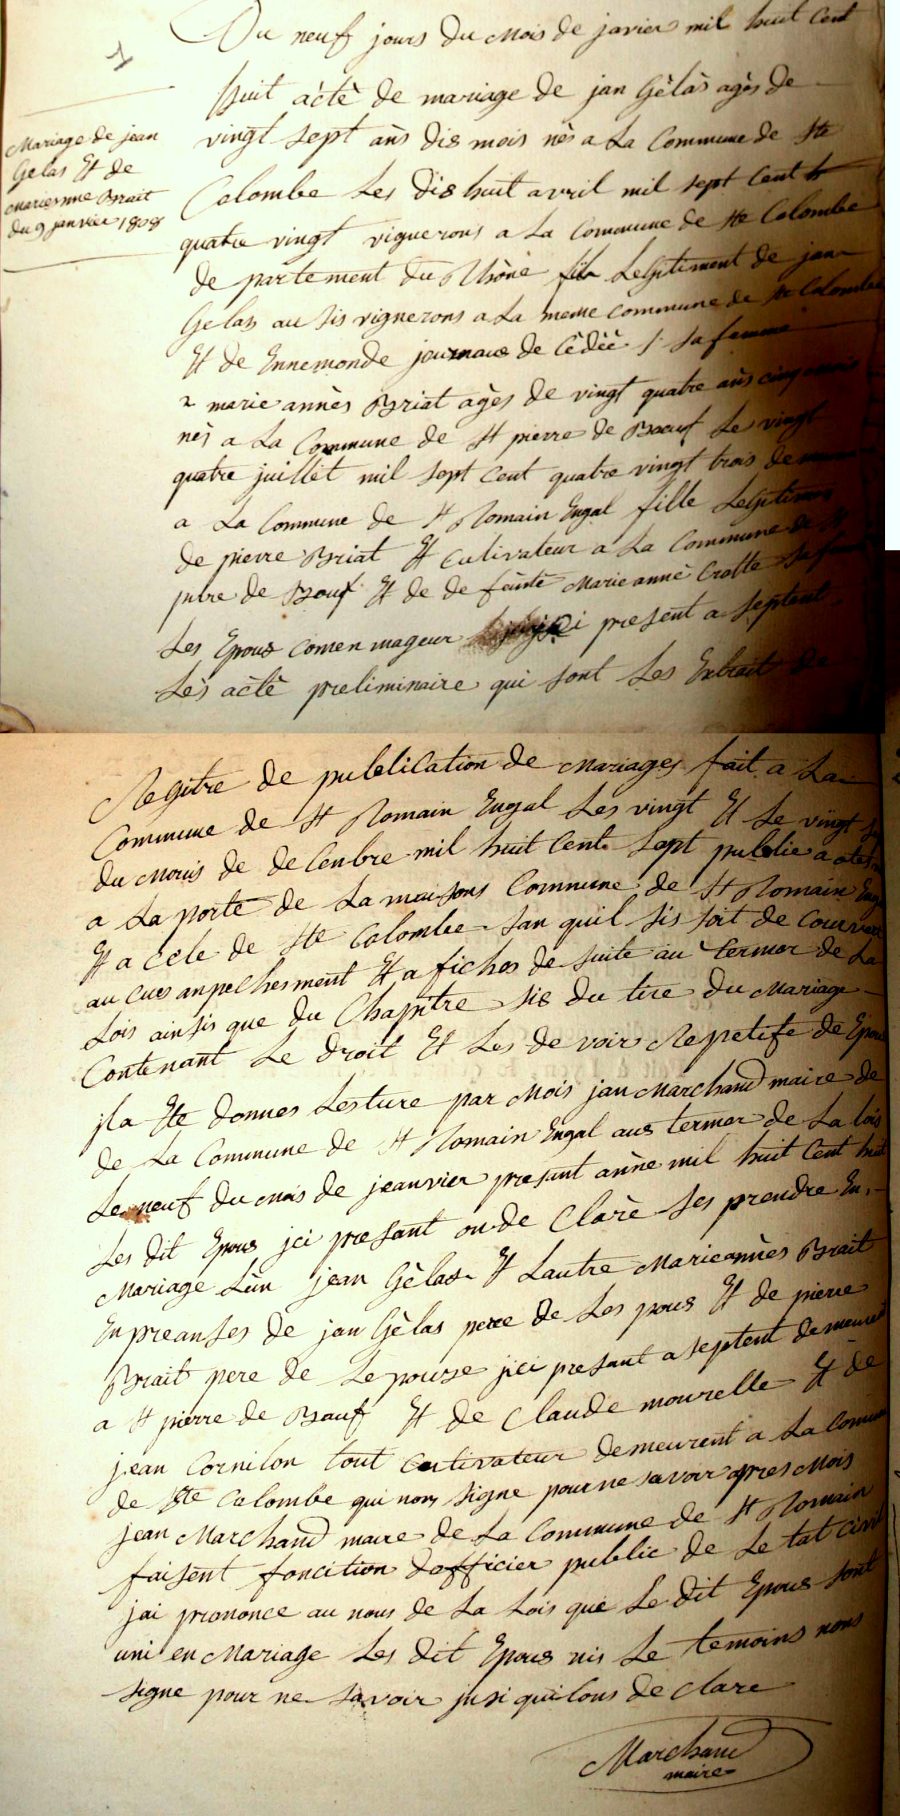 1
Du neuf jours du mois de javier mil huit cent
Mariage de jean
Gelas Et de
marienne Brait
du 9 janvier 1808
huit acté de mariage de jan Gèlàs agés de
vingt sept ans dis mois nés a La Commune de Ste
Colombe Les dis huit avril mil sept Cent
quatre vingt viguerons a La Commune de Ste Colombe
de partement du Rhône fils Legitiment de jan
Gelas au sis vignerons a La meme Commune de Ste Colombe
Et de Ennemonde journaus de Cèdèè sa femme
marie annès Briat agès de vingt quatre ans cinq mois
nès a La Commune de St pierre de Bœuf Le vingt
quatre juillet mil sept Cent quatre vingt trois
a La Commune de St Romain Engal fille Legitimes
de pierre Briat Et Cultivateur a La Commune de St
piere de Bouf Et de de feinte Marie anné Crotte
Les Epous Comen mageur i present a septent
Lès actè preliminaire qui sont Les Extrait de
Regitre de publication de Mariages fait a La
Commune de St Romain Engal Les vingt Et Le vingt
du mouis de de Cenbre mil huit Cent Sept publie
a La porte de La maisons Commune de St Romain
Et a Cele de Ste Colombe San quil sis soit de
au cues anpechesment Et a fiches de suite au termer de La
Lois ainsis que du Chapitre sis du tire du Mariage
Contenant Le droit Et Les de voir Repetife de Epous
jla Ete donnes Lesture par Mois jan Marchand maire de
de La Commune de St Romain Engal aus termer de La lois
Le neuf du mois de jeanvier presant anne mil huit Cent huit
Les dit Epous jci presant on de Clarè ses prendre En
Mariage Lùn jean Gèlas Et Lautre Marieannès Brait
En preanses de jan Gèlas pere de Les pous Et de pierre
Brait pere de Le pouse jci presant a septent demeurent
a St pierre de Bœuf Et de Claude mourelle Et de
jean Cornilon tout Cultivateur demeurent a La Comune
de Ste Colombe qui nons signe pour ne savoir apres Mois
jean Marchand maire de La Commune de St Romain
faisent foncition dofficier public de Le tat Civil
jai prononce au nous de La Lois que Le dit Epous sont
uni en Mariage Les dit Epous nis Le temoins nons
signe pour ne savoir jnsi quilons de Clare
Marchand
maire